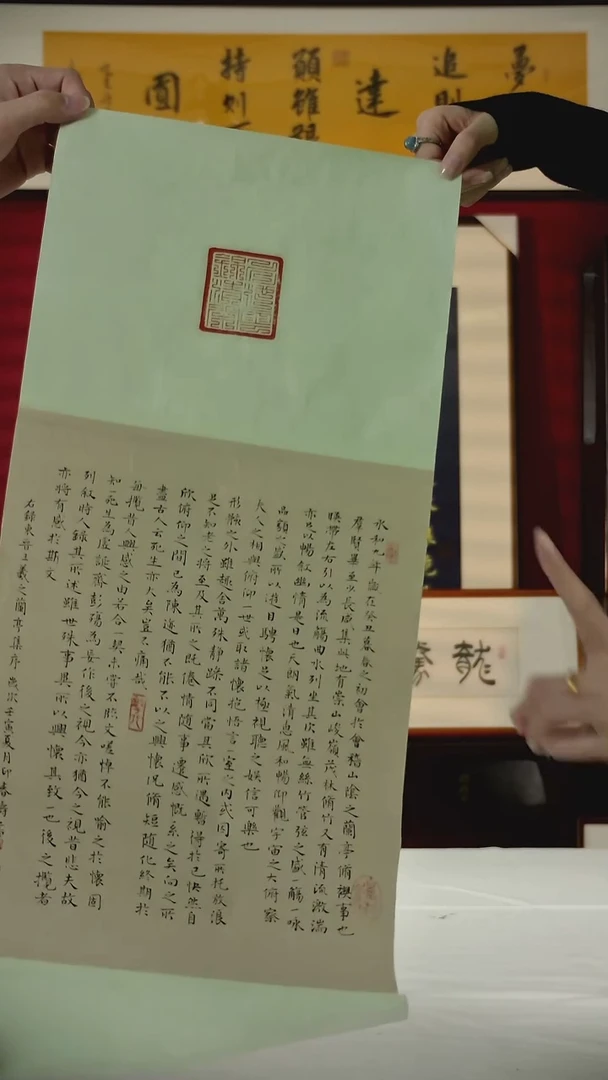 夢
追則
達
雖
持則
圖
永和九年歲在癸丑暮春之初會於會稽山陰之蘭亭脩禊事也
群賢畢至少長咸集此地有崇山峻嶺茂林脩竹又有清流激湍
暎帶左右引以為流觴曲水列坐其次雖無絲竹管弦之盛一觴一咏
亦足以暢敘幽情是日也天朗氣清惠風和暢仰觀宇宙之大俯察
品類之盛所以遊目騁懷足以極視聽之娛信可樂也
夫人之相與俯仰一世或取諸懷抱悟言一室之內或因寄所托放浪
形骸之外雖趣舍萬殊靜躁不同當其欣所遇暫得於己快然自
足不知老之將至及其所之既倦情隨事遷感慨系之矣向之所
欣俯仰之間已為陳迹猶不能不以之興懷況脩短隨化終期於
盡古人云死生亦大矣豈不痛哉
每攬昔人興感之由若合一契未嘗不臨文嗟悼不能喻之於懷固
知一死生為虛誕齊彭殤為妄作後之視今亦猶今之視昔悲夫故
列敘時人錄其所述雖世殊事異所以興懷其致一也後之攬者
亦將有感於斯文
右錄東晉王羲之蘭亭集序 歲次壬寅夏月印春
龍騰